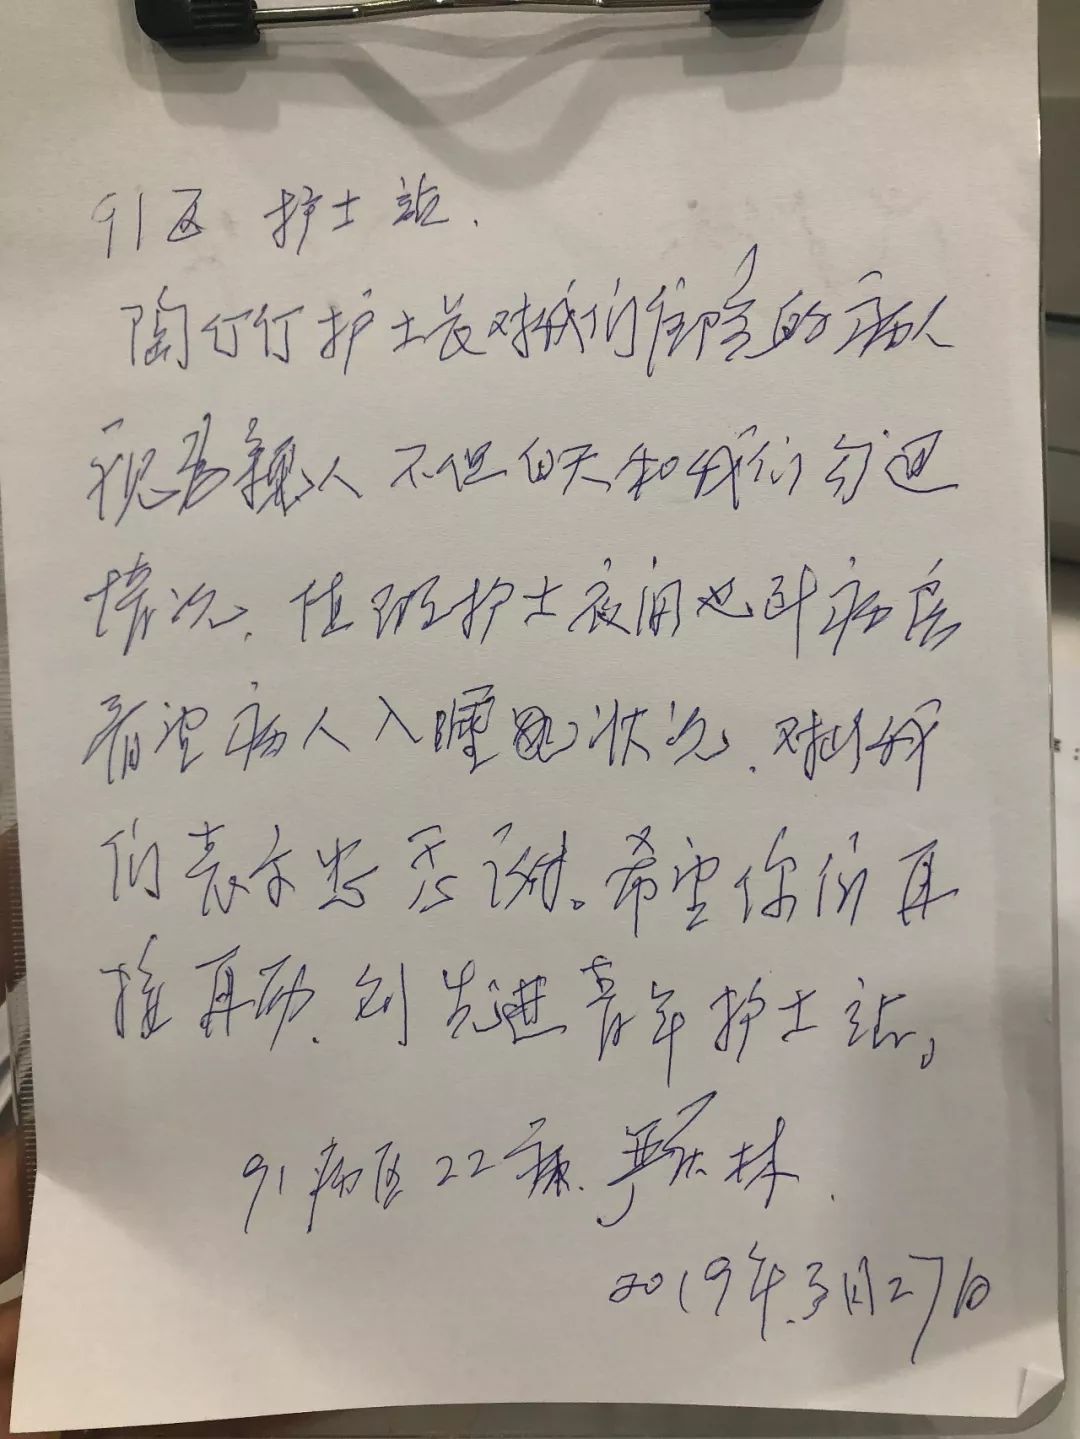 91区 护士站.
陶仃仃护士长对我们住院的病人
视为亲人 不但白天和我们勾通
情况. 值班护士夜间也到病房
看望病人入睡 状况. 对此我
们表示 感谢。希望你们再
接再励. 创先进青年护士站。
91病区22床. 严庆林.
2019年.3月27日